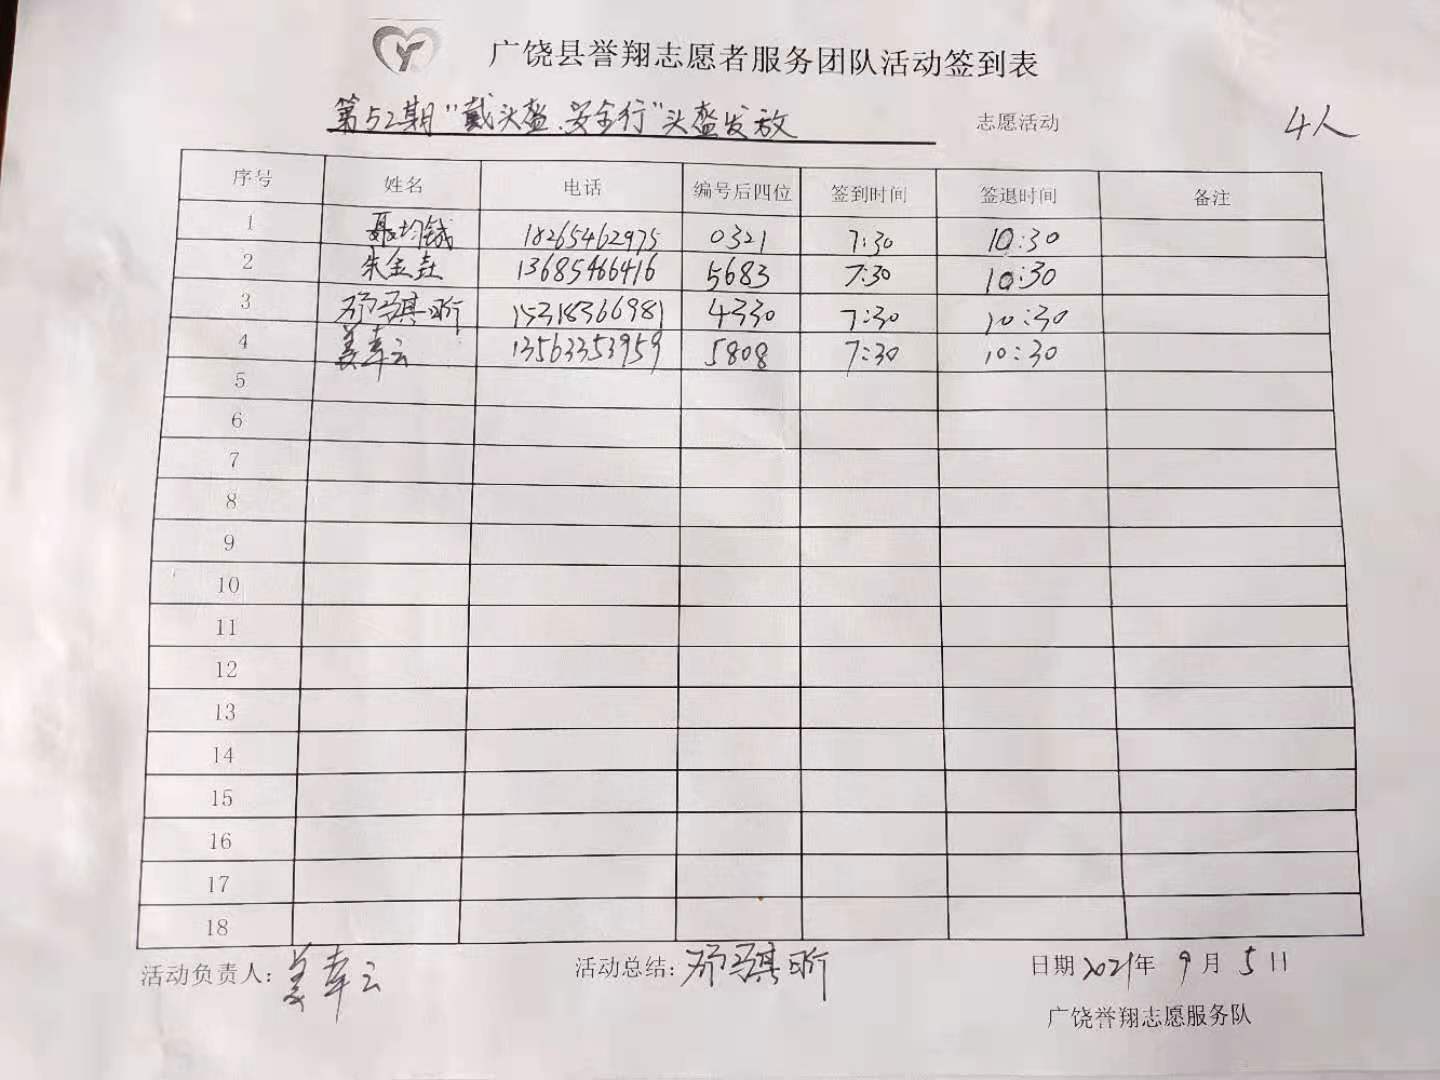 广饶县誉翔志愿者服务团队活动签到表
第52期"戴头盔、安全行"头盔发放 志愿活动 4人
序号 姓名 电话 编号后四位 签到时间 签退时间 备注
1 聂均铖 18265462975 0321 7:30 10:30
2 朱金垚 13685466416 5683 7:30 10:30
3 邓骐昕 15318366981 4330 7:30 10:30
4 姜幸云 13563353959 5808 7:30 10:30
5
6
7
8
9
10
11
12
13
14
15
16
17
18
活动负责人：姜幸云 活动总结：邓骐昕 日期 2021年 9月 5日
广饶誉翔志愿服务队